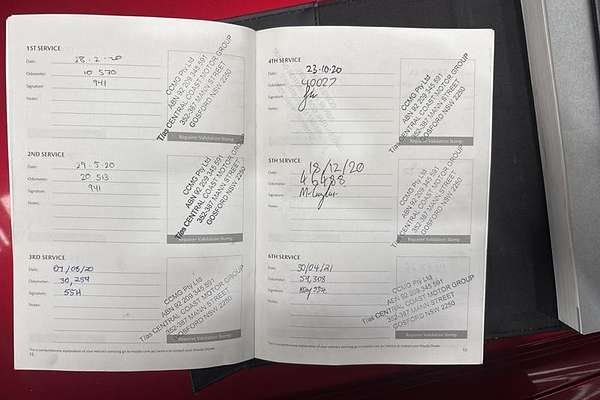 1ST SERVICE
Date: 28-2-20
Odometer: 10 570
Signature: 941
Notes:
CCMG Pty Ltd
ABN 92 209 345 591
T/as CENTRAL COAST MOTOR GROUP
352-387 MANN STREET
GOSFORD NSW 2250
Repairer Validation Stamp
2ND SERVICE
Date: 29-5-20
Odometer: 20 513
Signature: 941
Notes:
CCMG Pty Ltd
ABN 92 209 345 591
T/as CENTRAL COAST MOTOR GROUP
352-387 MANN STREET
GOSFORD NSW 2250
Repairer Validation Stamp
3RD SERVICE
Date: 07/08/20
Odometer: 30,259
Signature: SSH
Notes:
CCMG Pty Ltd
ABN 92 209 345 591
T/as CENTRAL COAST MOTOR GROUP
352-387 MANN STREET
GOSFORD NSW 2250
Repairer Validation Stamp
4TH SERVICE
Date: 23-10-20
Odometer: 40027
Signature:
Notes:
CCMG Pty Ltd
ABN 92 209 345 591
T/as CENTRAL COAST MOTOR GROUP
352-387 MANN STREET
GOSFORD NSW 2250
Repairer Validation Stamp
5TH SERVICE
Date: 18/12/20
Odometer: 46488
Signature:
Notes:
CCMG Pty Ltd
ABN 92 209 345 591
T/as CENTRAL COAST MOTOR GROUP
352-387 MANN STREET
GOSFORD NSW 2250
Repairer Validation Stamp
6TH SERVICE
Date: 30/04/21
Odometer: 59,308
Signature:
Notes:
CCMG Pty Ltd
ABN 92 209 345 591
T/as CENTRAL COAST MOTOR GROUP
352-387 MANN STREET
GOSFORD NSW 2250
Repairer Validation Stamp